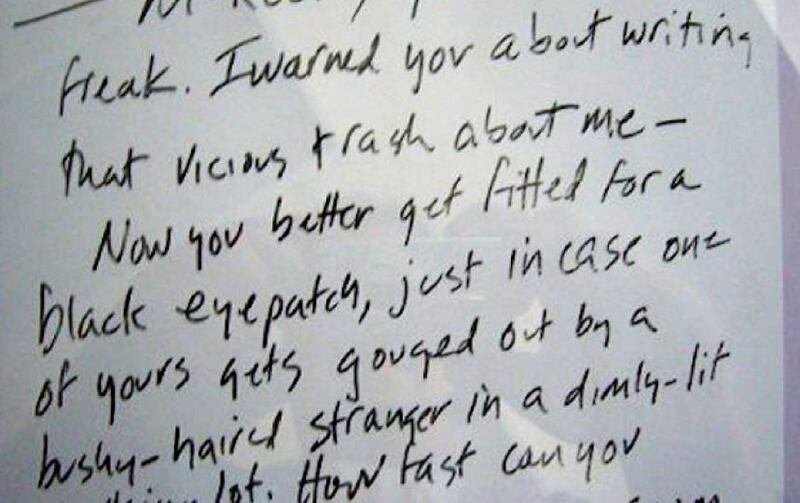 freak. I warned you about writing
that vicious trash about me —
Now you better get fitted for a
black eyepatch, just in case one
of yours gets gouged out by a
bushy-haired stranger in a dimly-lit
lot. How fast can you